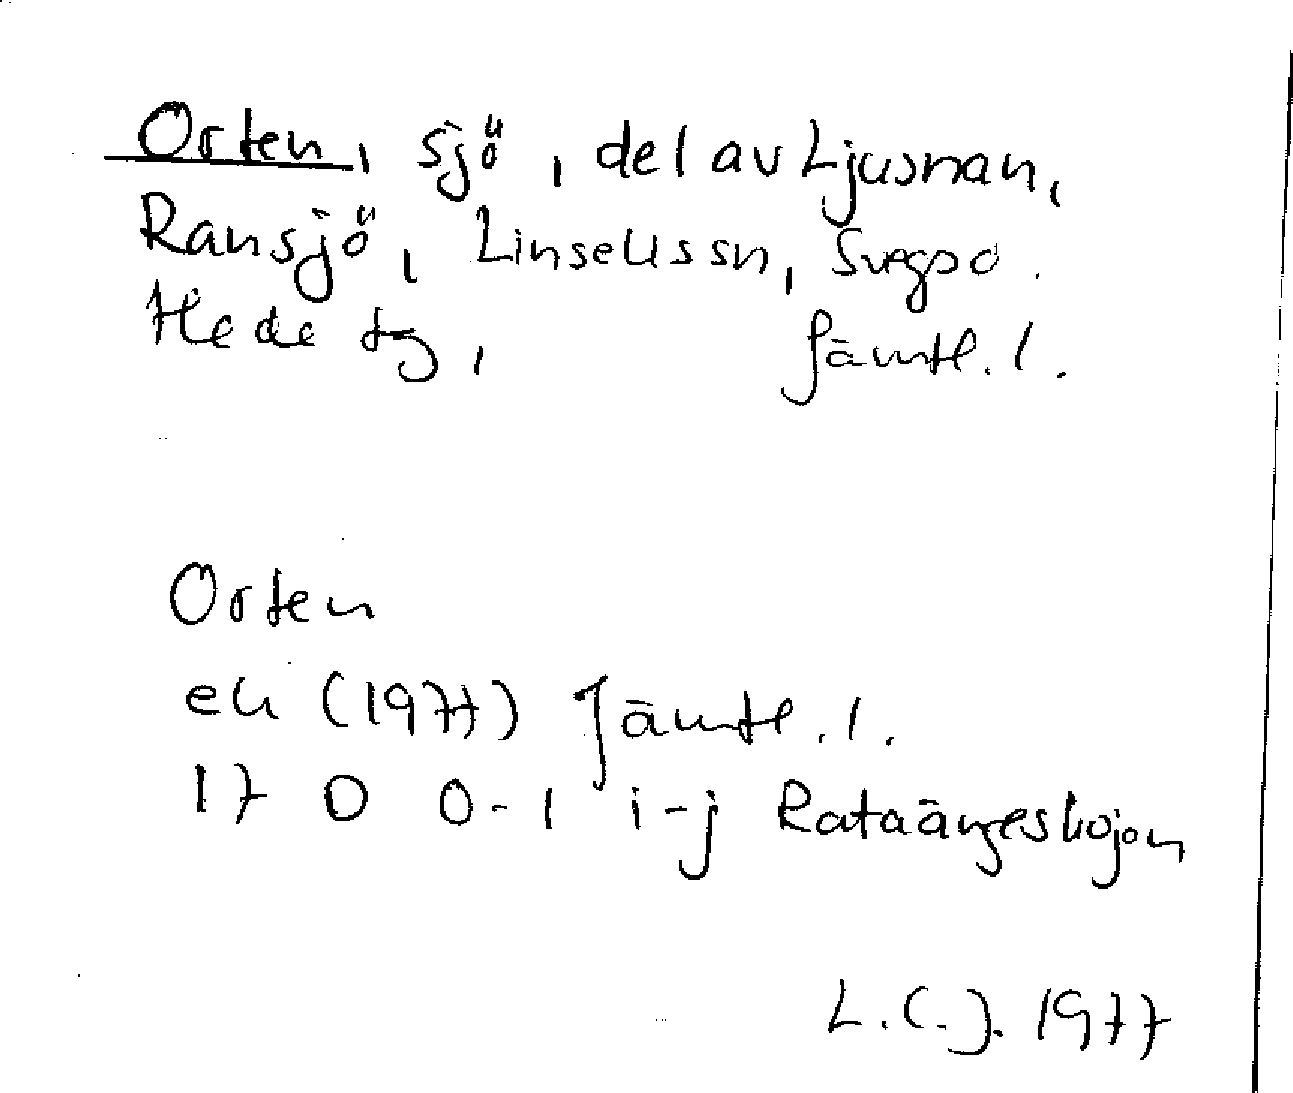 Orten, sjö, del av Ljusnan,
Ransjö, Linsells sn, Svegs po.
Hede tg, Jämtl. l.
Orten
ek (1977) Jämtl. l.
17 D 0-1 i-j Rataängeskojan
L.C.J. 1977